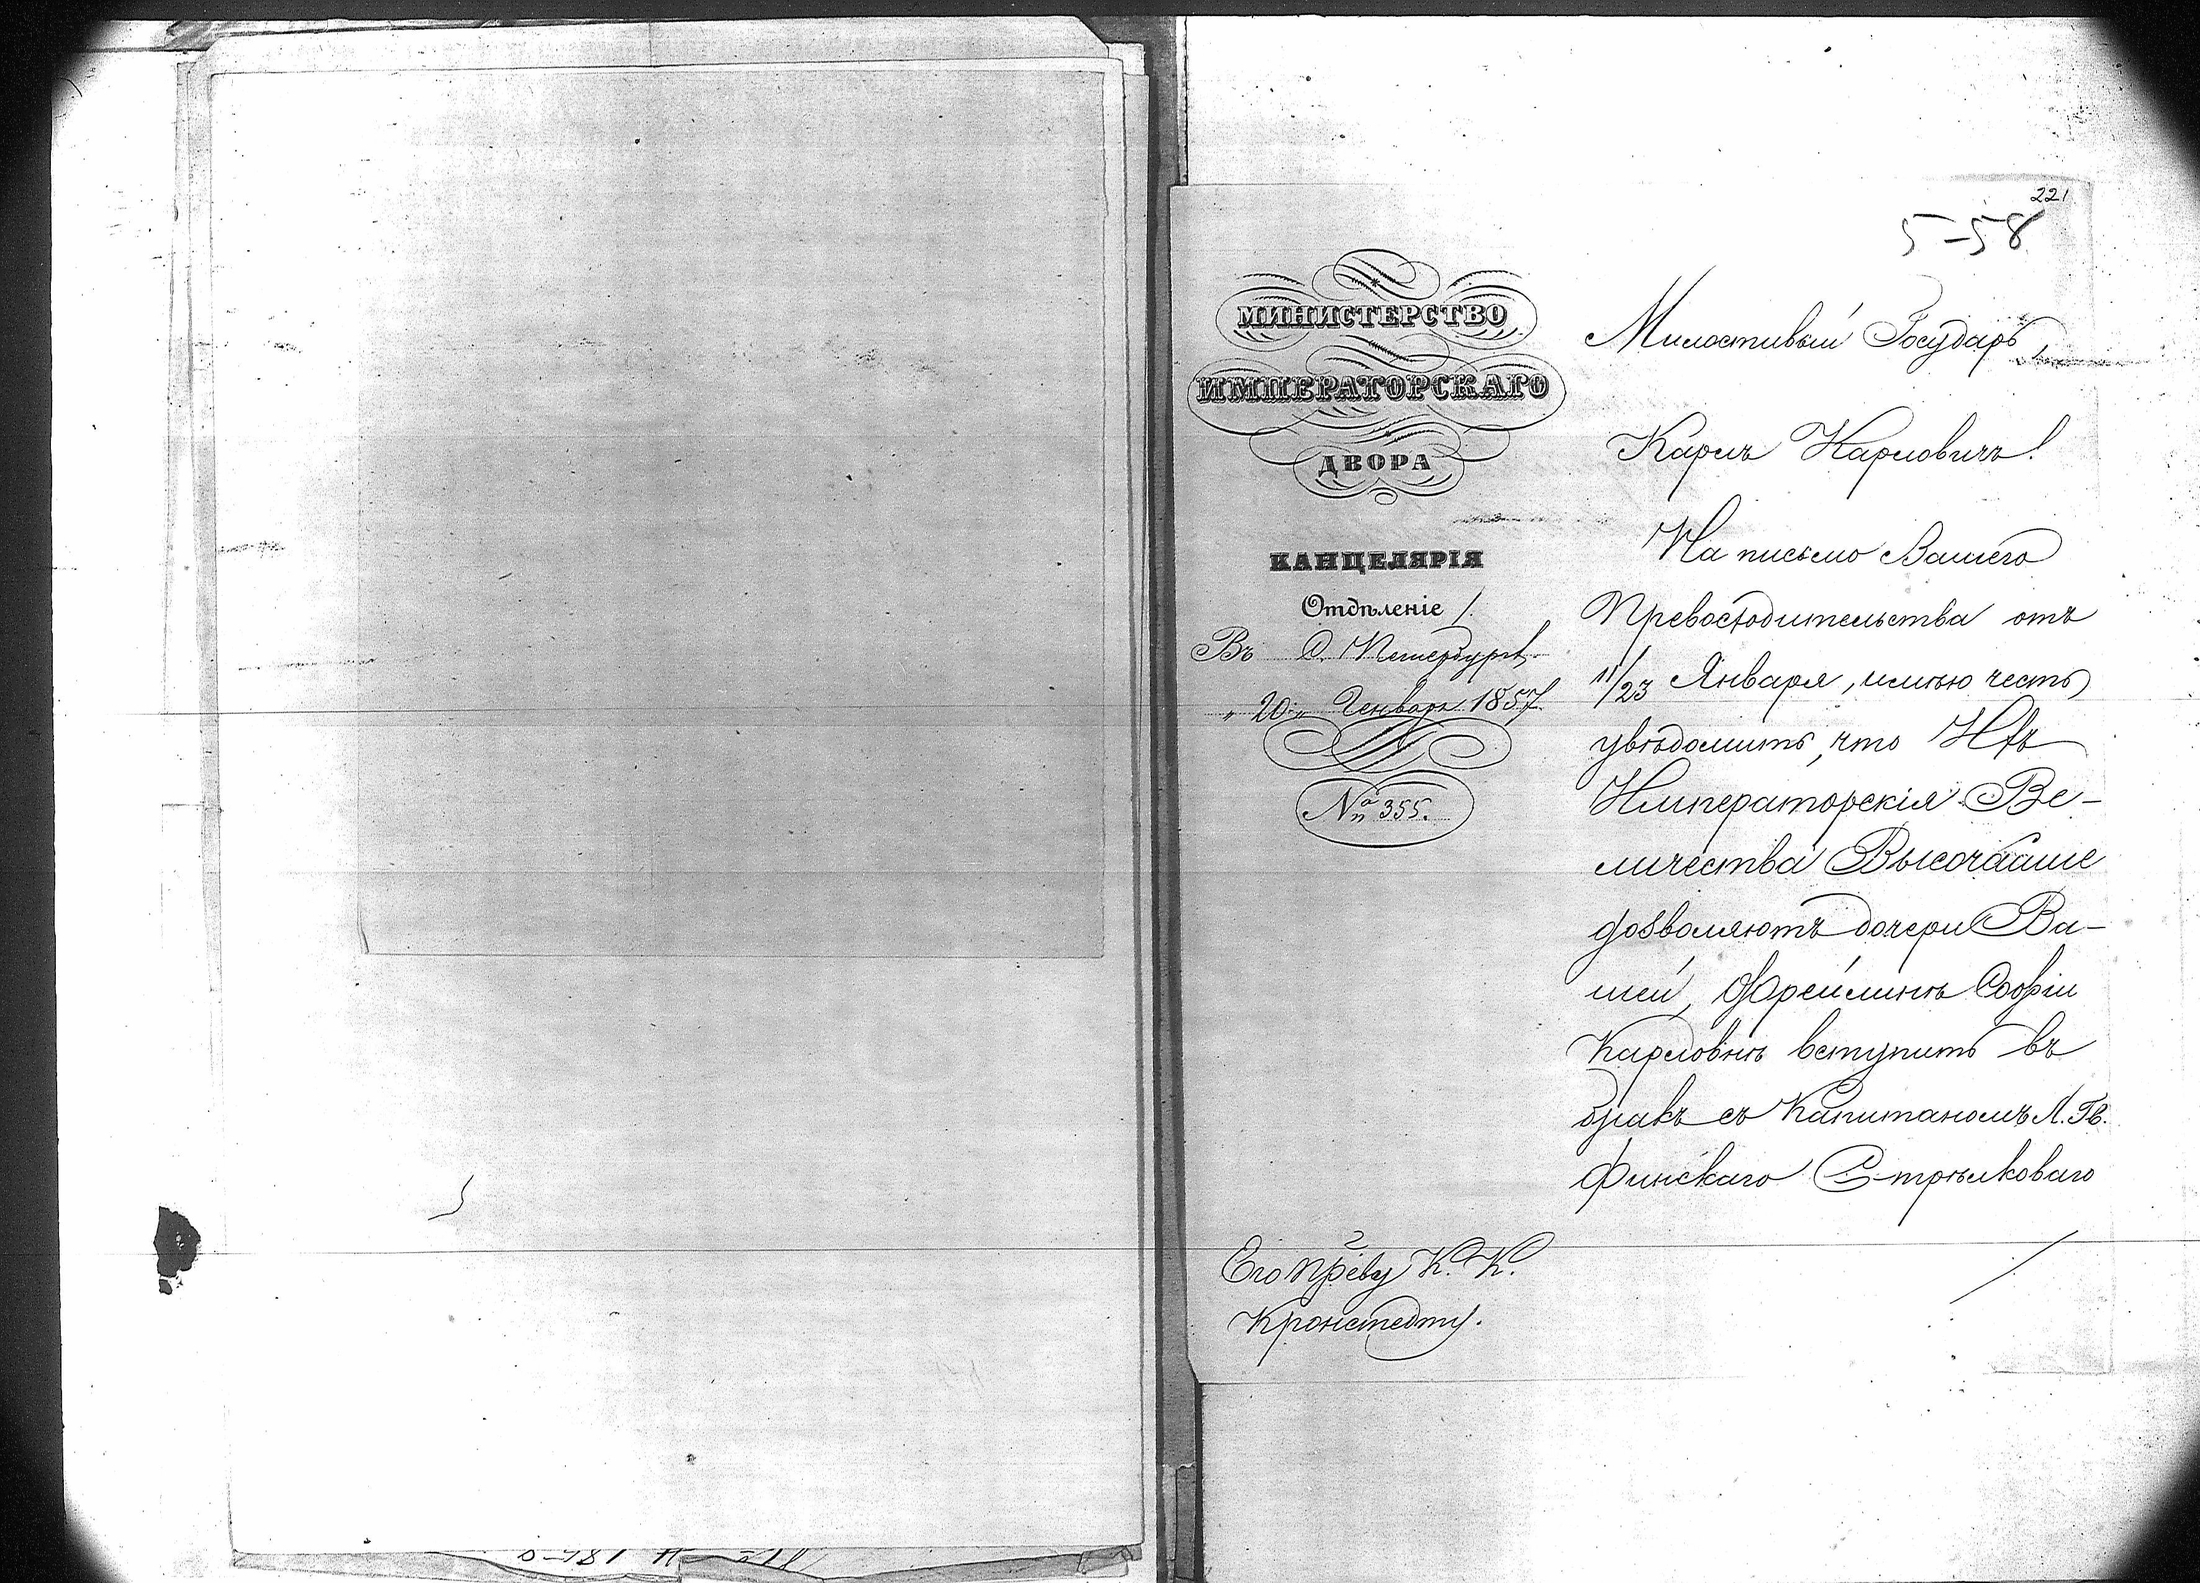 221
5-58
МИНИСТЕРСТВО
ИМПЕРАТОРСКАГО
ДВОРА
КАНЦЕЛЯРІЯ
Отдѣленіе 1.
Въ С. Петербургѣ
"20" Генваря 1857.
№ 355.
Милостивый Государь,
Карлъ Карловичъ!
На письмо Вашего
Превосходительства отъ
11/23 Января, имѣю честь
увѣдомить, что Ихъ
Императорскія Ве-
личества Высочайше
дозволяютъ дочери Ва-
шей, Фрейлинѣ Софіи
Карловнѣ вступить въ
бракъ съ Капитаномъ Л. Гв.
Финскаго Стрѣлковаго
Его Прев-ву К. К.
Кронстедту.